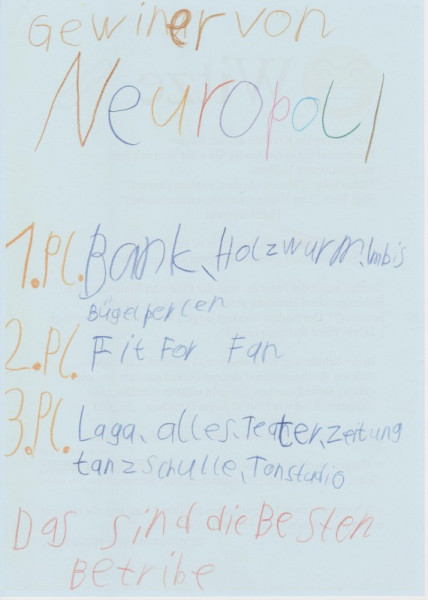 Gewinner von
Neuropoli
1.Pl. Bank, Holzwurm, Imbis
Bügelperlen
2.Pl. Fit For Fan
3.Pl. Laga, alles, Teater, Zeitung
tanzschulle, Tonstudio
Das sind die Besten
Betribe